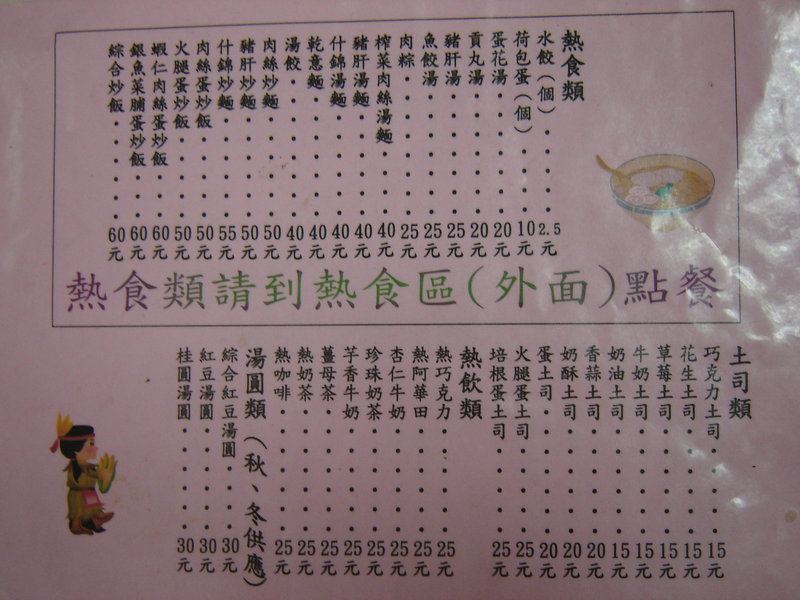 熱食類
水餃(個)・・・・2.5元
荷包蛋(個)・・・・10元
蛋花湯・・・・・・20元
貢丸湯・・・・・・20元
豬肝湯・・・・・・25元
魚餃湯・・・・・・25元
肉粽・・・・・・・25元
榨菜肉絲湯麵・・・40元
豬肝湯麵・・・・・40元
什錦湯麵・・・・・40元
乾意麵・・・・・・40元
湯餃・・・・・・・40元
肉絲炒麵・・・・・50元
豬肝炒麵・・・・・50元
什錦炒麵・・・・・55元
肉絲蛋炒飯・・・・50元
火腿蛋炒飯・・・・50元
蝦仁肉絲蛋炒飯・・60元
銀魚菜脯蛋炒飯・・60元
綜合炒飯・・・・・60元
熱食類請到熱食區(外面)點餐
土司類
巧克力土司・・・・・15元
花生土司・・・・・・15元
草莓土司・・・・・・15元
牛奶土司・・・・・・15元
奶油土司・・・・・・15元
香蒜土司・・・・・・20元
奶酥土司・・・・・・20元
蛋土司・・・・・・・20元
火腿蛋土司・・・・・25元
培根蛋土司・・・・・25元
熱飲類
熱巧克力・・・・・・25元
熱阿華田・・・・・・25元
杏仁牛奶・・・・・・25元
珍珠奶茶・・・・・・25元
芋香牛奶・・・・・・25元
薑母茶・・・・・・・25元
熱奶茶・・・・・・・25元
熱咖啡・・・・・・・25元
湯圓類(秋、冬供應)
綜合紅豆湯圓・・・・30元
紅豆湯圓・・・・・・30元
桂圓湯圓・・・・・・30元